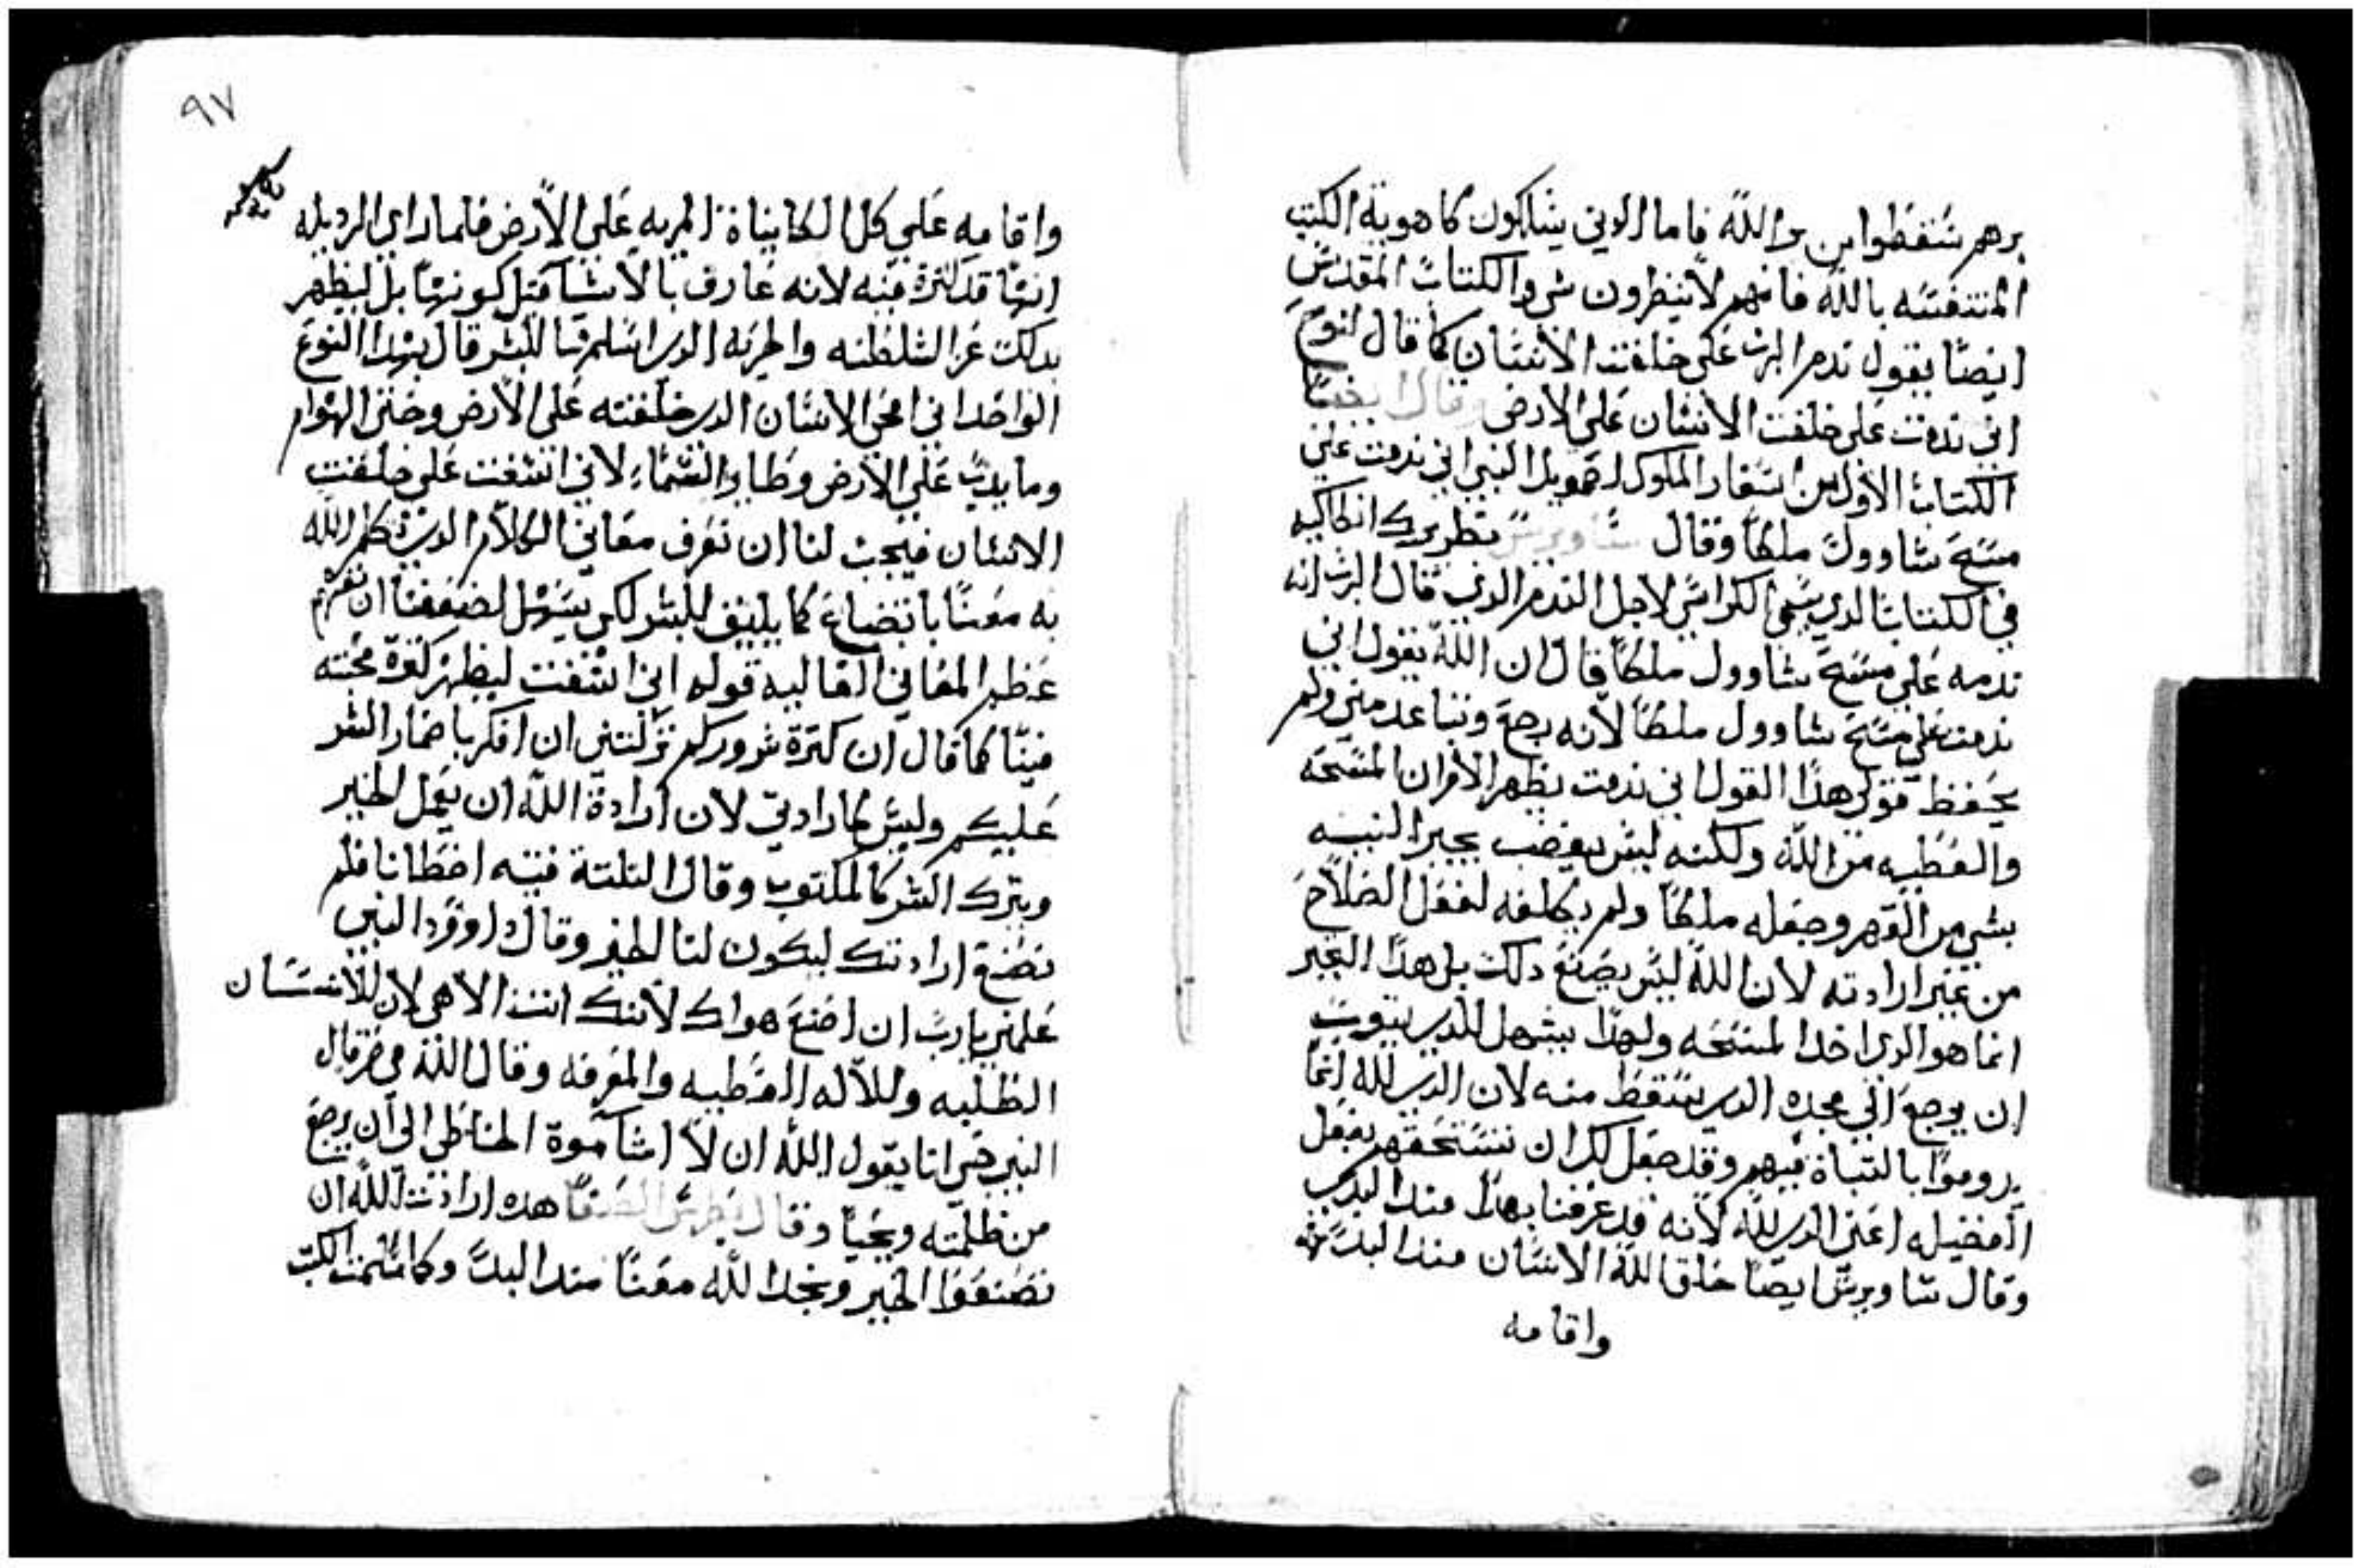 برهم سقطوا من الله فاما الدين يتاكون كما هوية الكتب
المتنفسه بالله فانهم لا ينظرون شي والكتاب المقدس
ايضا يقول ندم الرب على خلقت الانسان كما قال لنوح
اني ندمت على خلقت الانسان على الارض وقال ايضا
الكتاب الاول من اسفار الملوك لصمويل النبي اني ندمت على
مسح شاوول ملكا وقال ساويرس بطريرك انطاكيه
في الكتاب الدي يسمى الكراس لاجل الندم الدي قال الرب انه
ندمه على مسح شاوول ملكا قال ان الله يقول اني
ندمت على مسح شاوول ملكا لانه رجع وتباعد مني ولم
يحفظ قولي هدا القول اني ندمت يظهر الامر ان المسحه
والعطيه من الله ولكنه ليس يغضب بجبر النيه
بشي من القهر وجعله ملكا ولم يكلفه لفعل الصلاح
من غير ارادته لان الله ليس يصنع دلك بل هدا
انما هو الدي اخد المسحه ولهدا يسهل للدي يتوب
ان يرجع الي مجده الدي يسقط منه لان الدي لله انما
يروموا بالتباة فيهم وقد جعل لك ان تستحقهم بفعل
الفضيله اعني الدي لله لانه قد عرفنا بهدا مند البدي
وقال ساويرس ايضا خلق الله الانسان مند البدي
واقامه
٩٧
واقامه على كل الكايناة المريه على الارض فلما راي الرديله
انها قد كترة فيه لانه عارف بالاشيا قبل كونها بل ليظهر
بدلك عز السلطنه والحريه الدي اسلم فيا للبشر قال بهدا النوع
الواحد اني امحي الانسان الدي خلقته على الارض وحتى الهوام
وما يدب على الارض وطاير السماء لاني اسفت على خلقت
الانسان فيجب لنا ان نعرف معاني الكلام الدي تكلم الله
به معنا باتضاع كما يليق للبشر لكي يسهل لضعفنا ان نفهم
عظم المعاني العاليه قوله اني اسفت ليظهر كترة محبته
فينا كما قال ان كترة شروركم تركتني ان افكر باضمار الشر
عليكم وليس كارادتي لان ارادة الله ان يعمل الخير
ويترك الشر كالمكتوب وقال التلتة فتيه اخطانا فلم
نصنع ارادتك ليكون لنا الخير وقال داوود النبي
علمني يارب ان اصنع هواك لانك انت الاهي لان للانسان
الطلبه وللاله العطيه والمعرفه وقال الله في حزقيال
النبي حي انا يقول الله ان لا اشا موة الخاطي الى ان يرجع
من ظلمته ويحيا وقال بطرس الصفا هده ارادت الله ان
تصنعوا الخير ونجد الله معنا مند البدي وكما شهدت الكتب